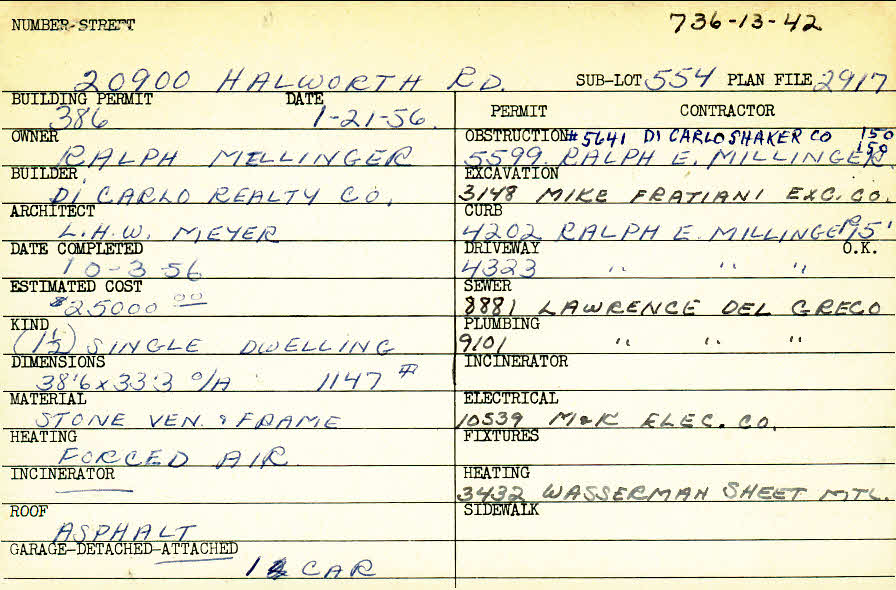 736-13-42
NUMBER-STREET
20900 HALWORTH RD. SUB-LOT 554 PLAN FILE 2917
BUILDING PERMIT DATE
386 1-21-56.
OWNER
RALPH MILLINGER
BUILDER
DI CARLO REALTY CO.
ARCHITECT
L.H.W. MEYER
DATE COMPLETED
10-3-56
ESTIMATED COST
$25000 00
KIND
(1½) SINGLE DWELLING
DIMENSIONS
38'6 x 33'3 O/A 1147 #
MATERIAL
STONE VEN. & FRAME
HEATING
FORCED AIR
INCINERATOR
ROOF
ASPHALT
GARAGE-DETACHED-ATTACHED
1 CAR
PERMIT CONTRACTOR
OBSTRUCTION #5641 DI CARLO SHAKER CO 150
5599 RALPH E. MILLINGER 150
EXCAVATION
3148 MIKE FRATIANI EXC. CO.
CURB
4202 RALPH E. MILLINGER 15'
DRIVEWAY O.K.
4323 " " "
SEWER
8881 LAWRENCE DEL GRECO
PLUMBING
9101 " " "
INCINERATOR
ELECTRICAL
10539 M&K ELEC. CO.
FIXTURES
HEATING
3432 WASSERMAN SHEET MTL.
SIDEWALK